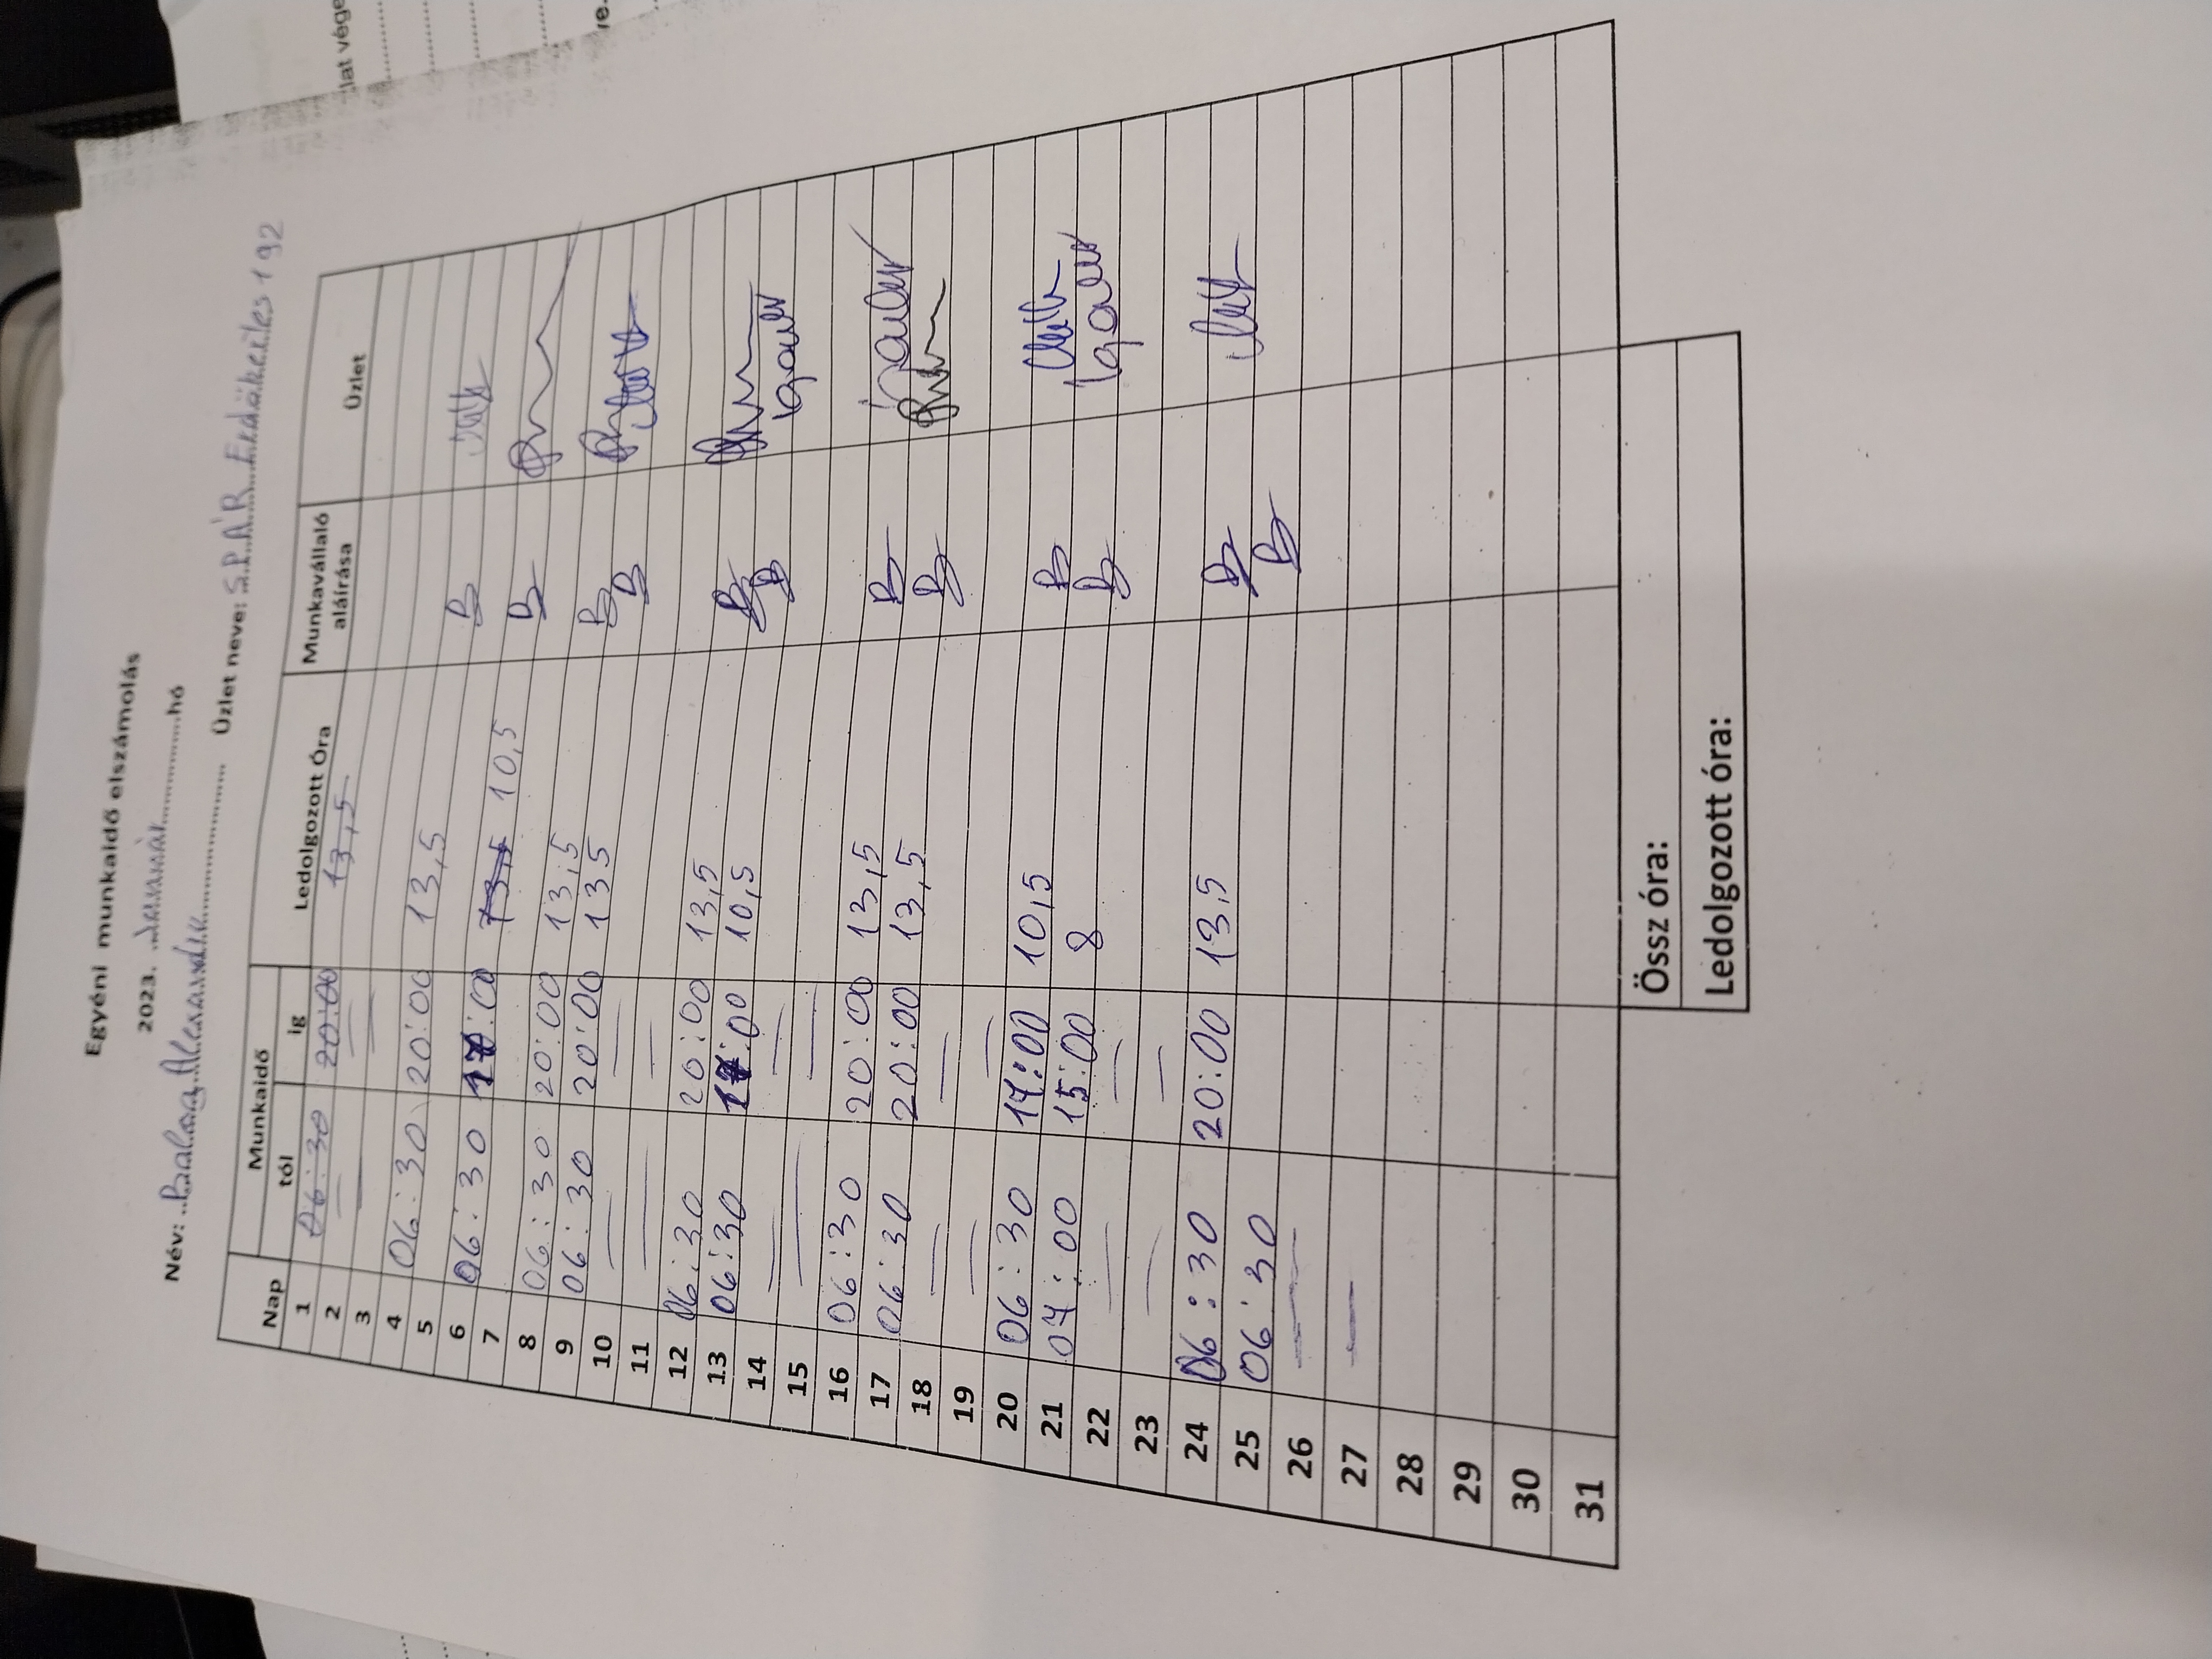 lat vége
ve.
Egyéni munkaidő elszámolás
2023. Január hó
Név: Balog Alexandra Üzlet neve: SPÁR Erdőkertes 192
Nap Munkaidő Ledolgozott Óra Munkavállaló aláírása Üzlet
tól ig
1 06:30 20:00 13,5
2 — —
3 — —
4 06:30 20:00 13,5
5
6 06:30 17:00 13,5 10,5 B
7
8 06:30 20:00 13,5 B
9 06:30 20:00 13,5 B
10 — — B
11 — —
12 06:30 20:00 13,5 B
13 06:30 17:00 10,5 B
14 — —
15 — —
16 06:30 20:00 13,5 B
17 06:30 20:00 13,5 B
18 — —
19 — —
20 06:30 17:00 10,5 B
21 07:00 15:00 8 B
22 — —
23 — —
24 06:30 20:00 13,5 B
25 06:30 B
26 —
27 —
28
29
30
31
Össz óra:
Ledolgozott óra: